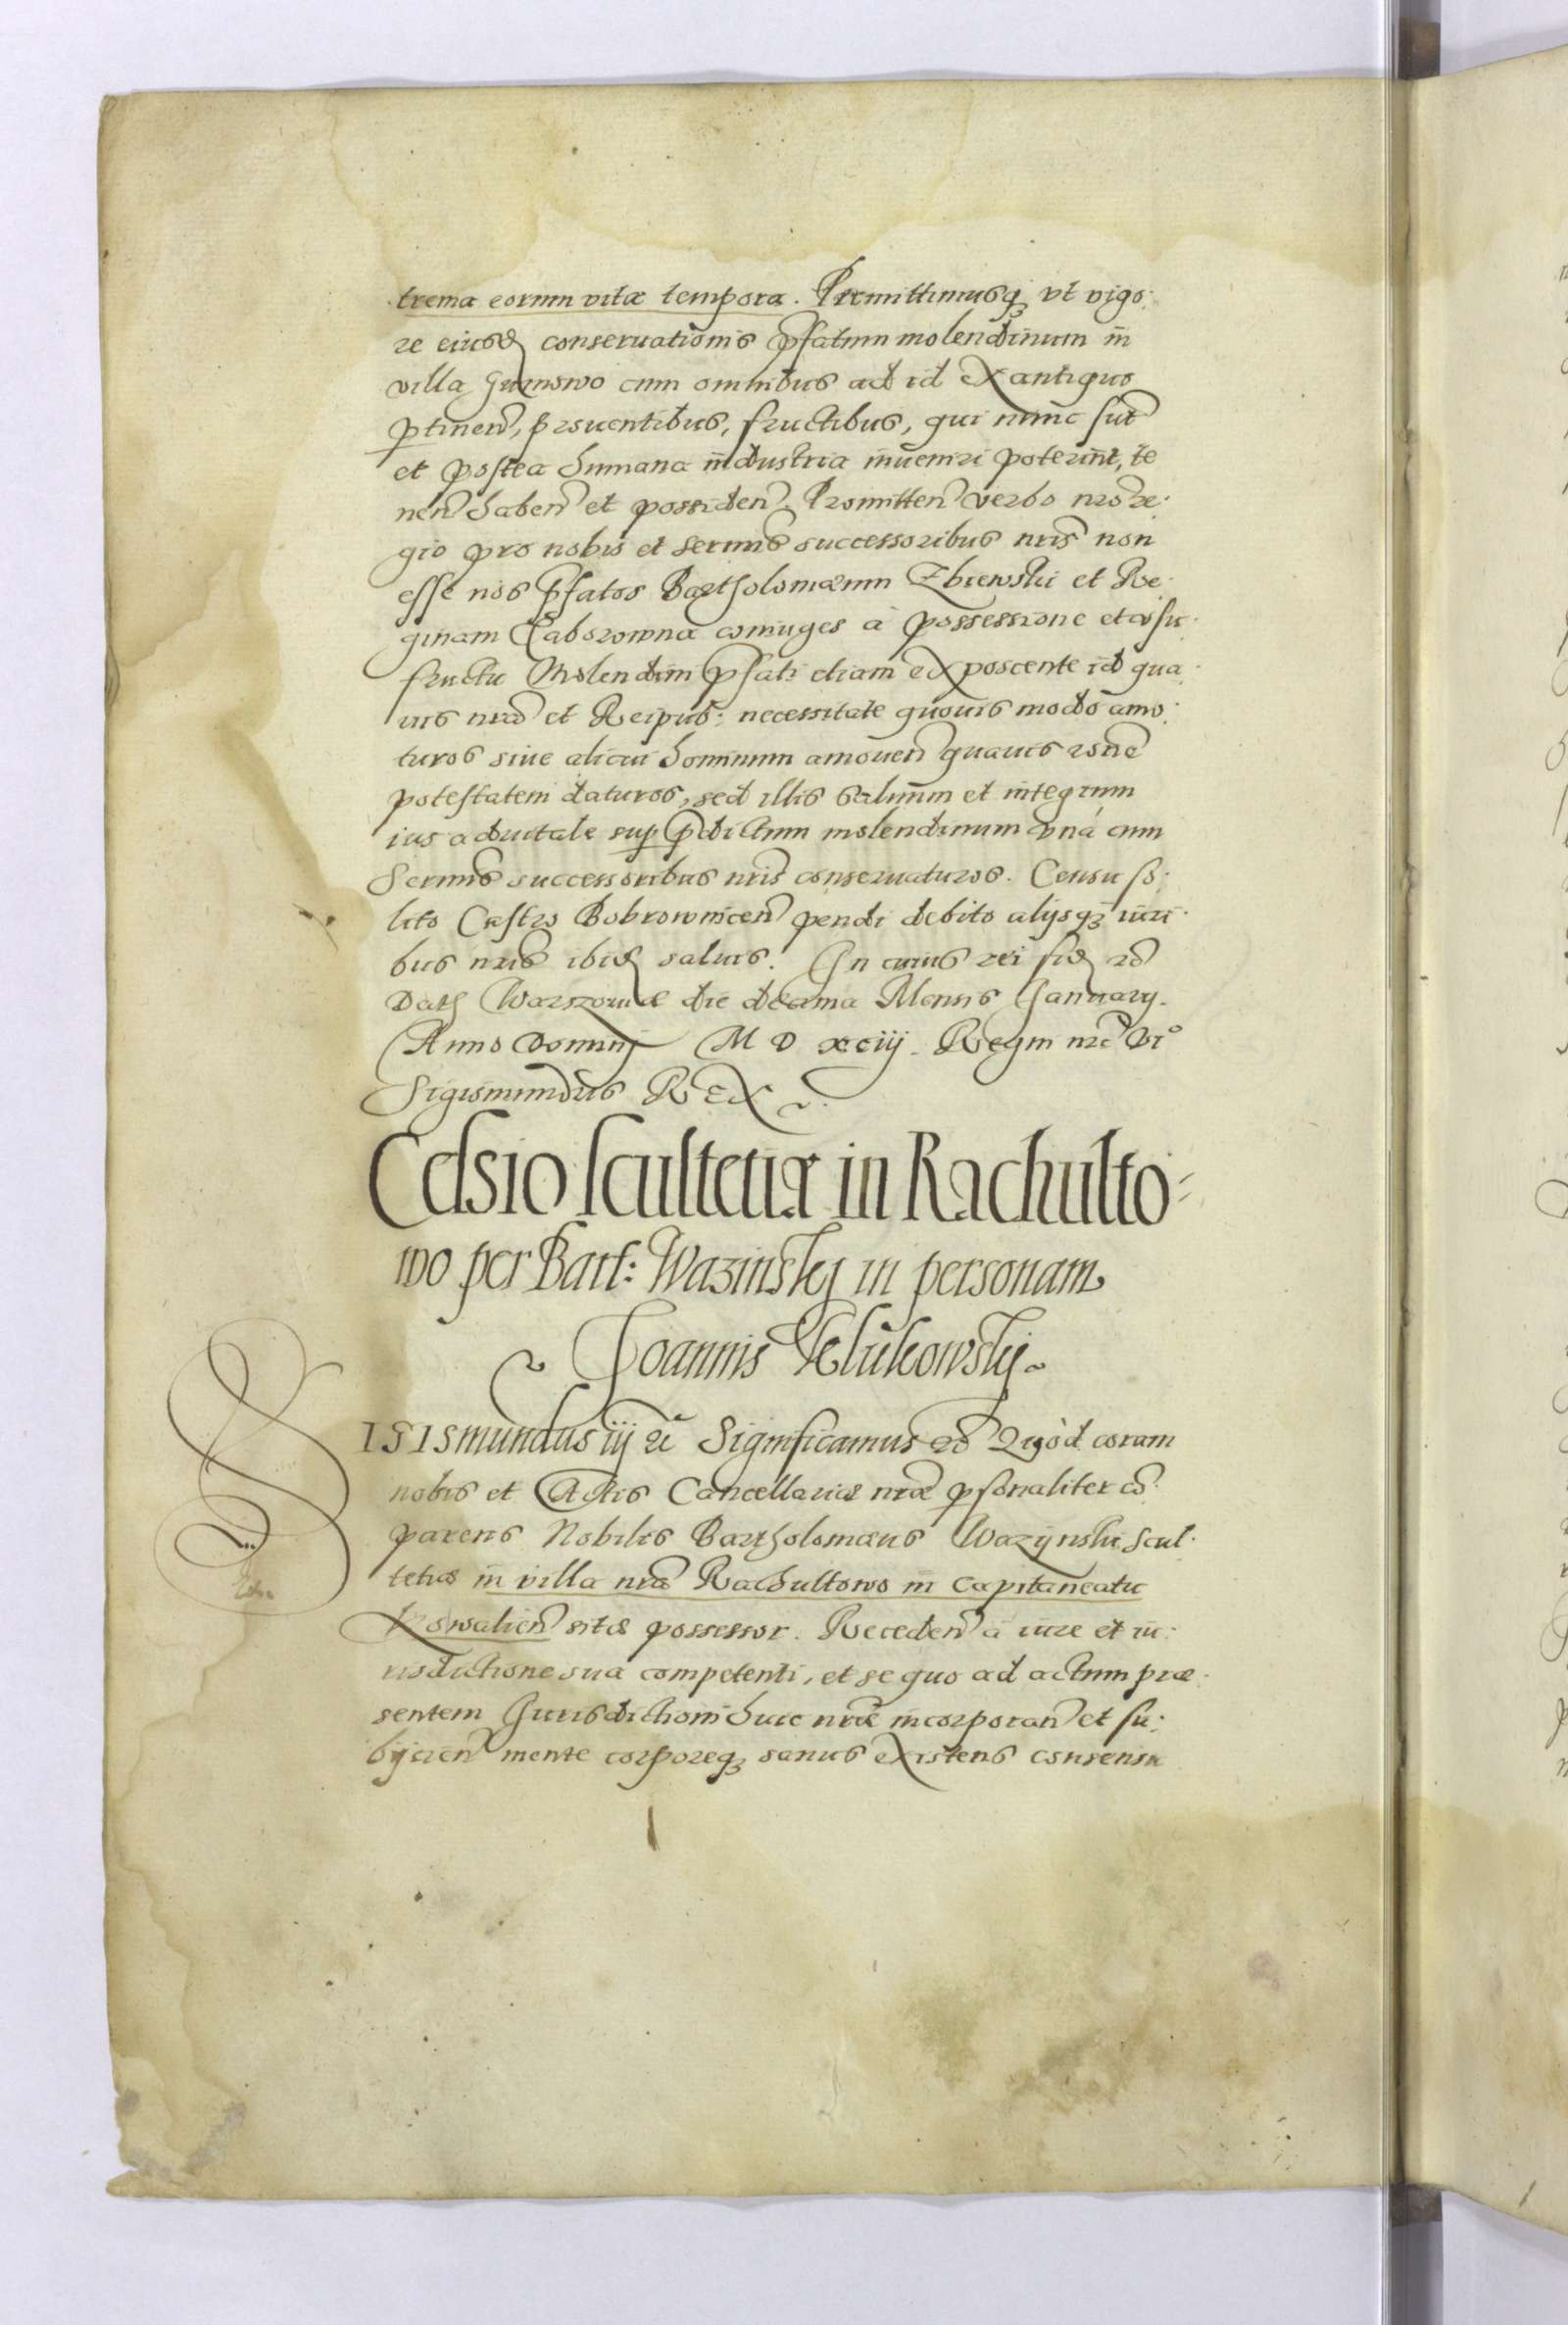 trema eorum vitæ tempora. Permittimusq₃ vt vigo:
re eiusd conseruationis pfatum molendinum in
villa Gumowo cum omnibus ad id ex antiquo
ptinen, prouentibus, fructibus, qui nunc sūt
et postea humana industria inueniri poterint, te
nen haben et possiden. Promitten verbo nro re:
gio pro nobis et sermis successoribus nris non
esse nos pfatos Bartholomæum Zbiewski et Re:
ginam Taborowna coniuges à possessione et vsu:
fructu Molendini pfati etiam exposcente id qua:
uis nra et Reipub: necessitate quouis modo amo:
turos siue alicui hominum amouen quauis rone
potestatem daturos, sed illis saluum et integrum
ius aduitale sup pdictum molendinum vná cum
Sermis successoribus nris conseruaturos. Censu so:
lito Castro Bobrownicen pendi debito alijsq₃ iuri:
bus nris ibid saluis. In cuius rei fid rc
Dat Warszouiæ die decima Mensis January.
Anno Dominj M D xciij. Regni nri vi°
Sigismundus REX
Cessio scultetiæ in Rachulto:
wo per Bart: Wazinskj in personam
Joannis Klukowskj
ISISmundus iij rc Significamus rc Quòd coram
nobis et Actis Cancellariæ nræ psonaliter cō:
parens Nobilis Bartholomæus Wazynski Scul:
tetiæ in villa nra Rachultowo in Capitaneatu
Kowalien sitæ possessor. Receden à iure et iu:
risdictione sua competenti, et se quo ad actum præ:
sentem Jurisdictioni huic nræ incorporan et su:
bijcien mente corporeq₃ sanus existens consensu